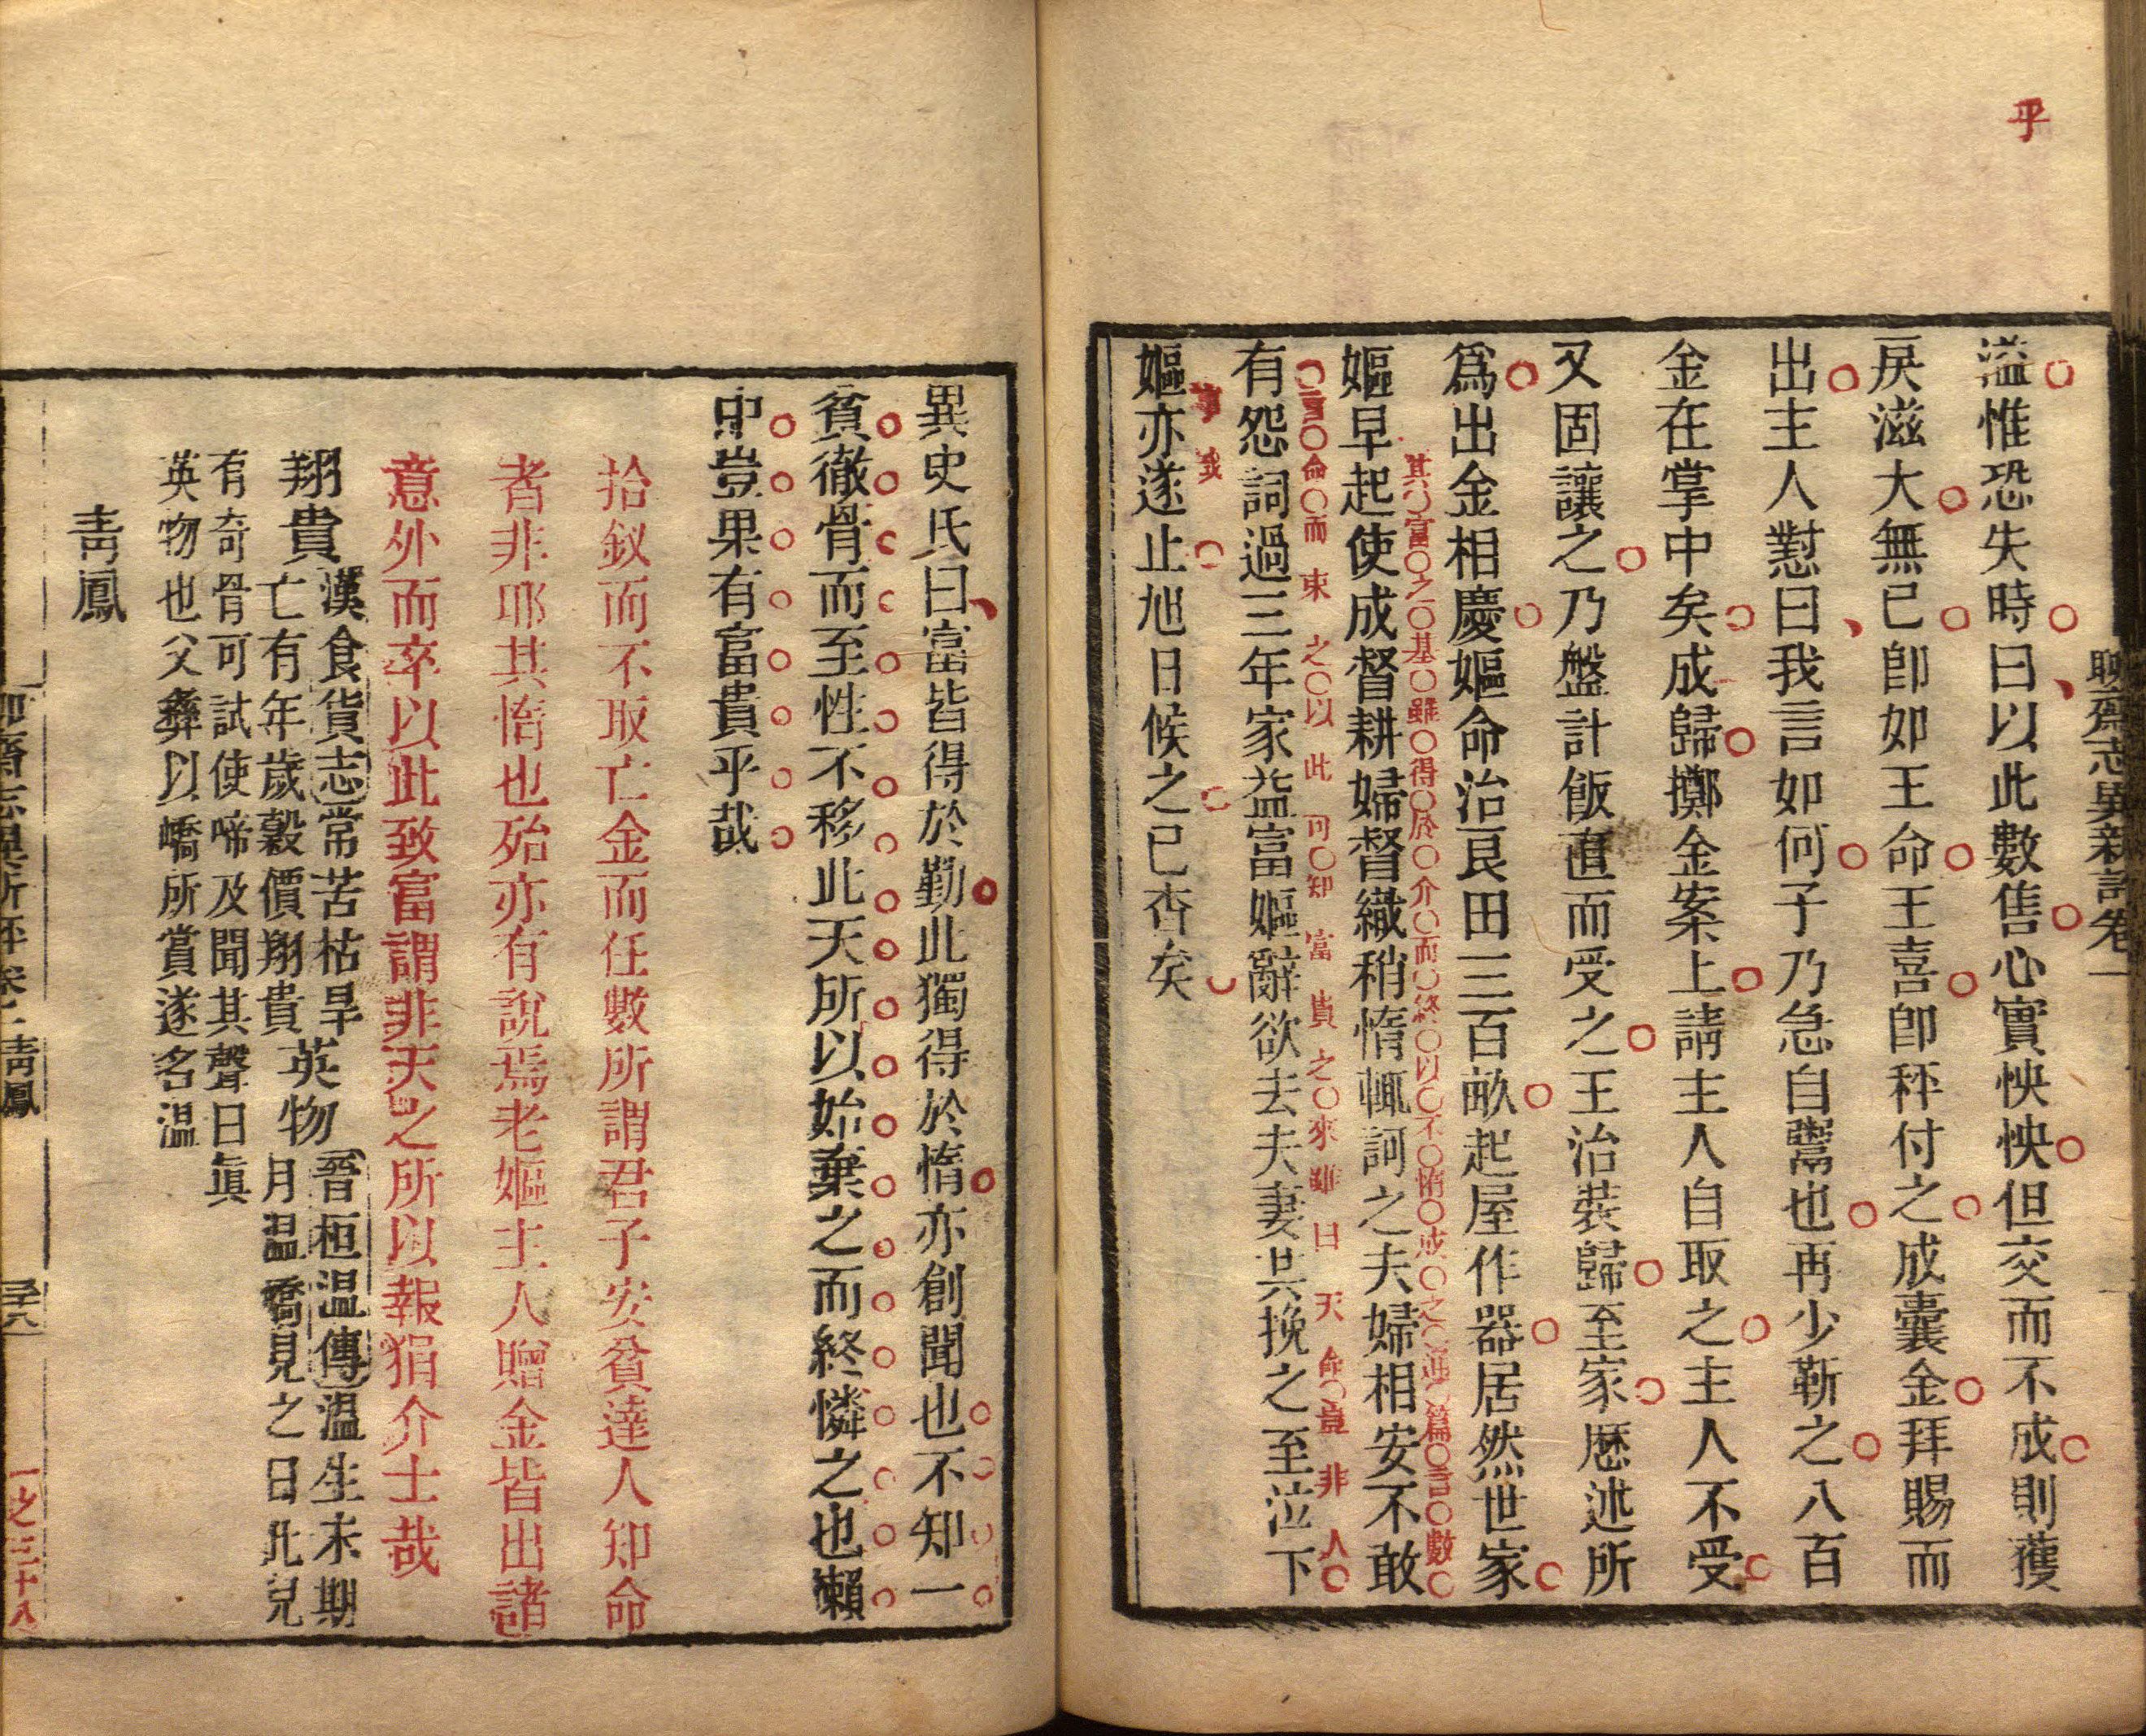 乎
聊齋志異新評卷一
溢惟恐失時曰以此數售心實怏怏但交而不成則獲
戾滋大無已卽如王命王喜卽秤付之成囊金拜賜而
出主人懟曰我言如何子乃急自鬻也再少靳之八百
金在掌中矣成歸擲金案上請主人自取之主人不受
又固讓之乃盤計飯直而受之王治裝歸至家歷述所
爲出金相慶嫗命治良田三百畝起屋作器居然世家
嫗早起使成督耕婦督織稍惰輒訶之夫婦相安不敢
有怨詞過三年家益富嫗辭欲去夫妻共挽之至泣下
嫗亦遂止旭日候之已杳矣
異史氏曰富皆得於勤此獨得於惰亦創聞也不知一
貧徹骨而至性不移此天所以始棄之而終憐之也懶
中豈果有富貴乎哉
拾釵而不取亡金而任數所謂君子安貧達人知命
者非耶其惰也殆亦有說焉老嫗主人贈金皆出諸
意外而卒以此致富謂非天之所以報狷介士哉
翔貴 漢食貨志常苦枯旱
亡有年歲穀價翔貴 英物 晉桓温傳温生未期
月温嶠見之曰此兒
有奇骨可試使啼及聞其聲曰眞
英物也父彝以嶠所賞遂名温
靑鳳
聊齋志異新評卷一 靑鳳
三十八
一之三十八